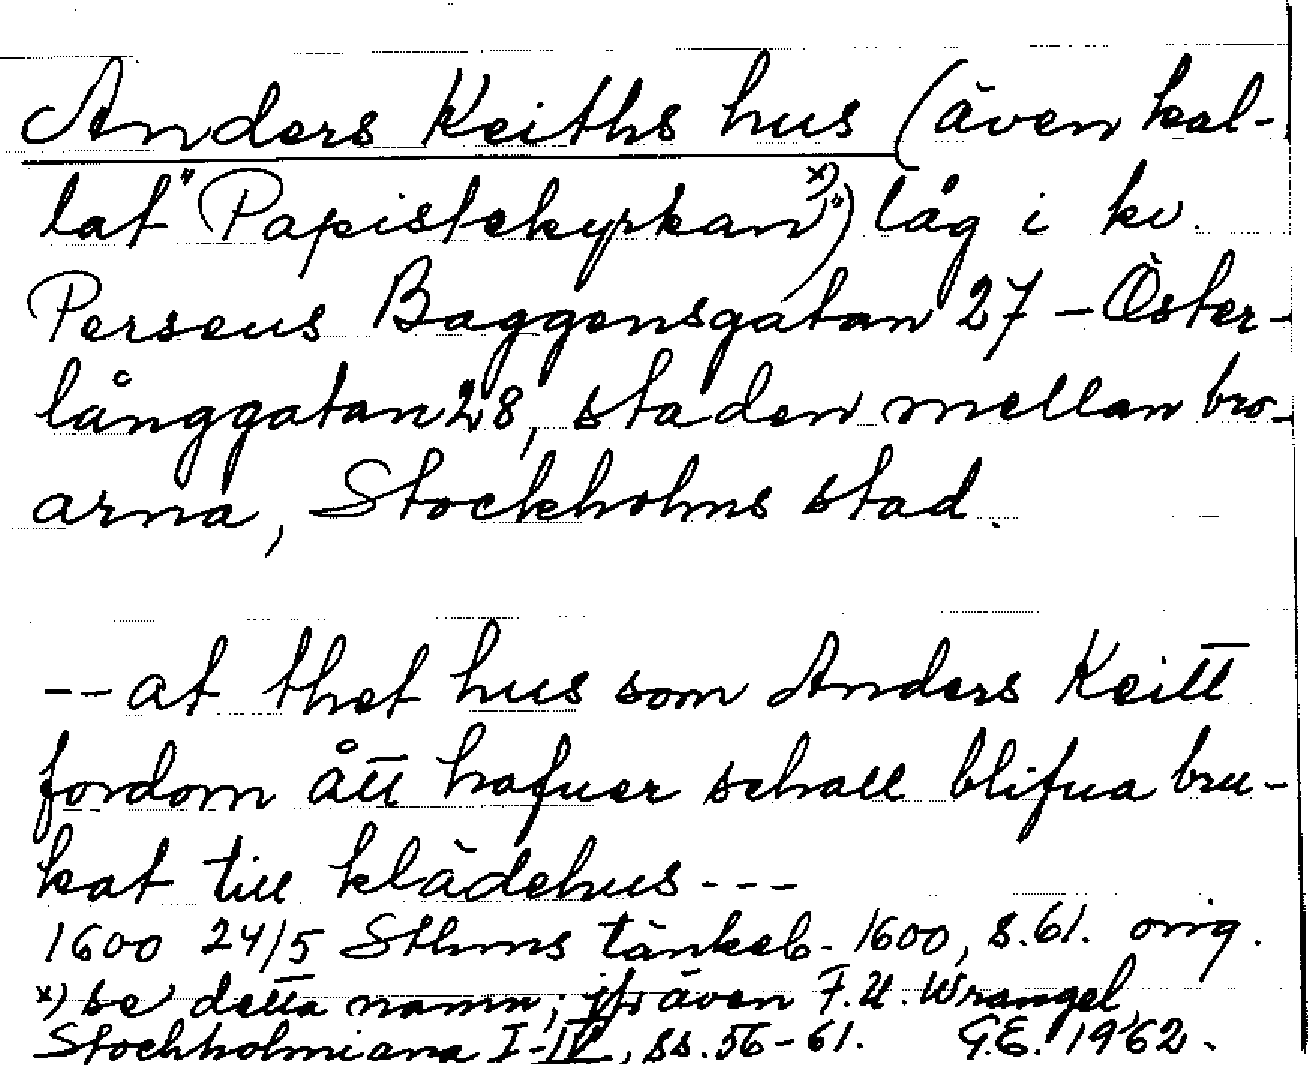 Anders Keiths hus (även kal-
lat "Papistekyrkan" x)) låg i kv.
Perseus Baggensgatan 27 - Öster-
långgatan 28, staden mellan bro-
arna, Stockholms stad.
-- at thet hus som Anders Keitt
fordom ått hafuer schall blifua bru-
kat till klädehus ---
1600 24/5 Sthms tänkeb. 1600, s. 61. orig.
x) se detta namn; jfr även F.U. Wrangel,
Stockholmiana I-IV, ss. 56-61. G.E. 1962.